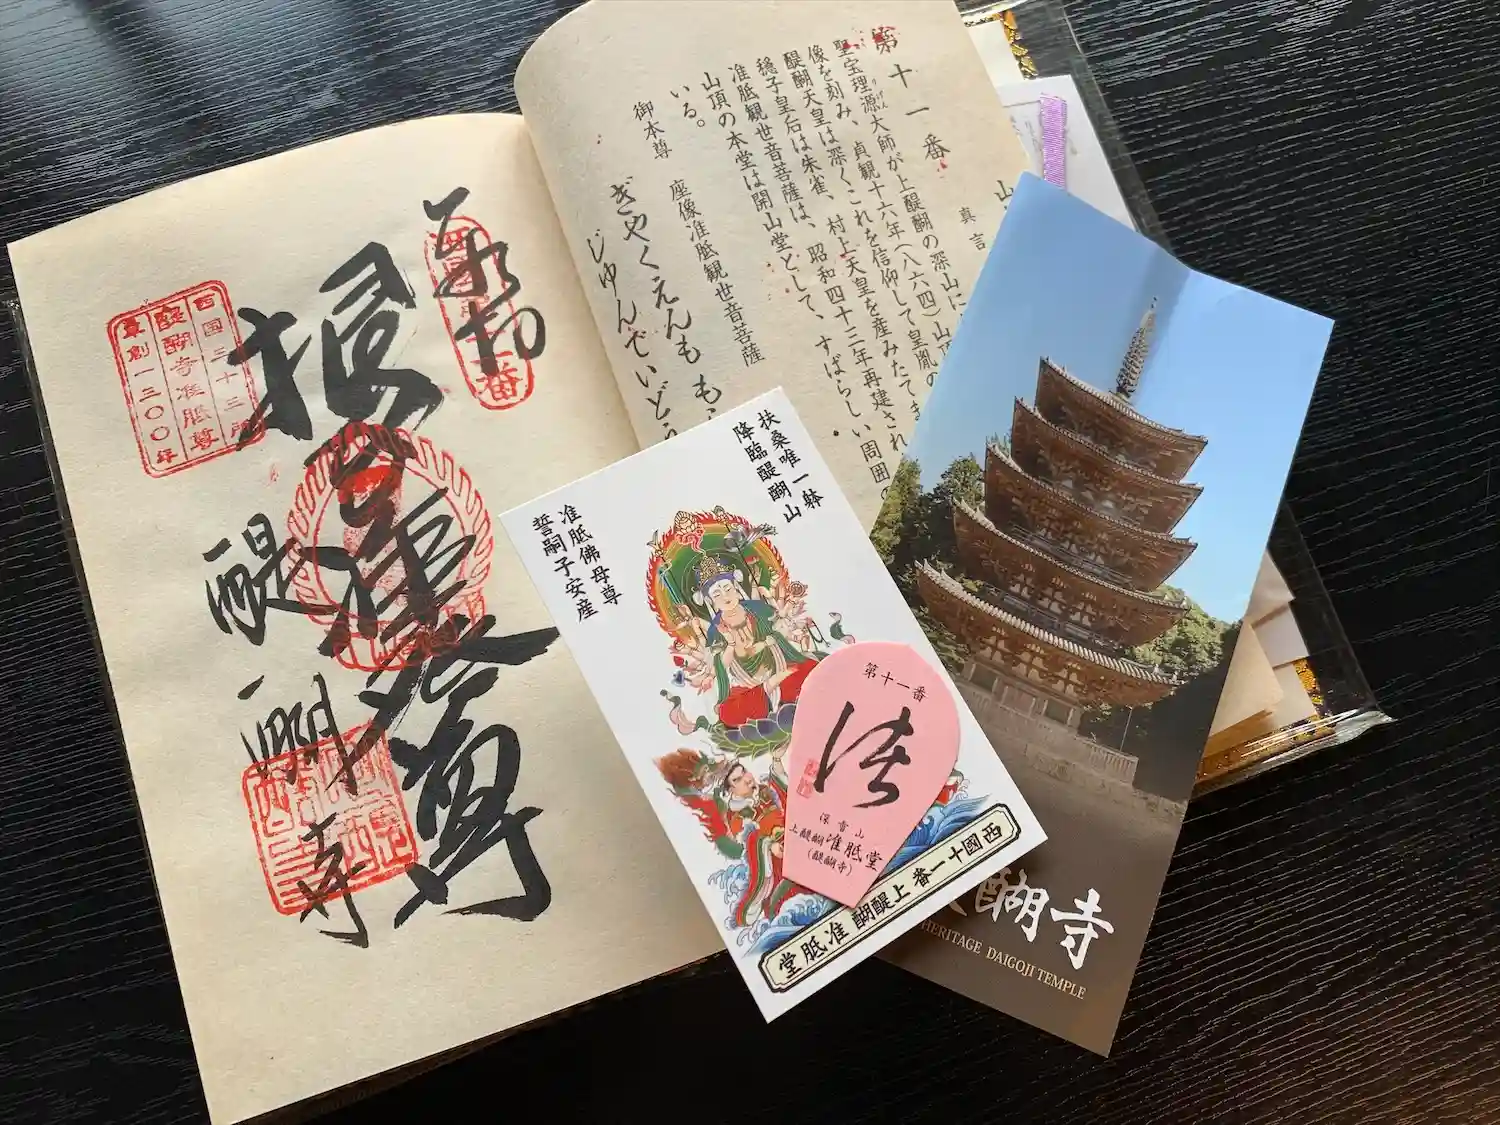 奉拝
西国三十三所
醍醐寺准胝尊
草創一三〇〇年
根本
准胝尊
醍醐寺
第十一番
山
真言
聖宝理源大師が上醍醐の深山に
りげん
像を刻み、貞観十六年(八六四)山頂
醍醐天皇は深くこれを信仰して皇胤の
穏子皇后は朱雀、村上天皇を産みたてま
准胝観世音菩薩は、昭和四十三年再建され
山頂の本堂は開山堂として、すばらしい周囲の
いる。
御本尊 座像准胝観世音菩薩
ぎやくえんも も
じゆんでいどう
扶桑唯一躰
降臨醍醐山
准胝佛母尊
誓嗣子安産
西國十一番 上醍醐 准胝堂
第十一番
深雪山
上醍醐 准胝堂
(醍醐寺)
醐寺
HERITAGE DAIGOJI TEMPLE